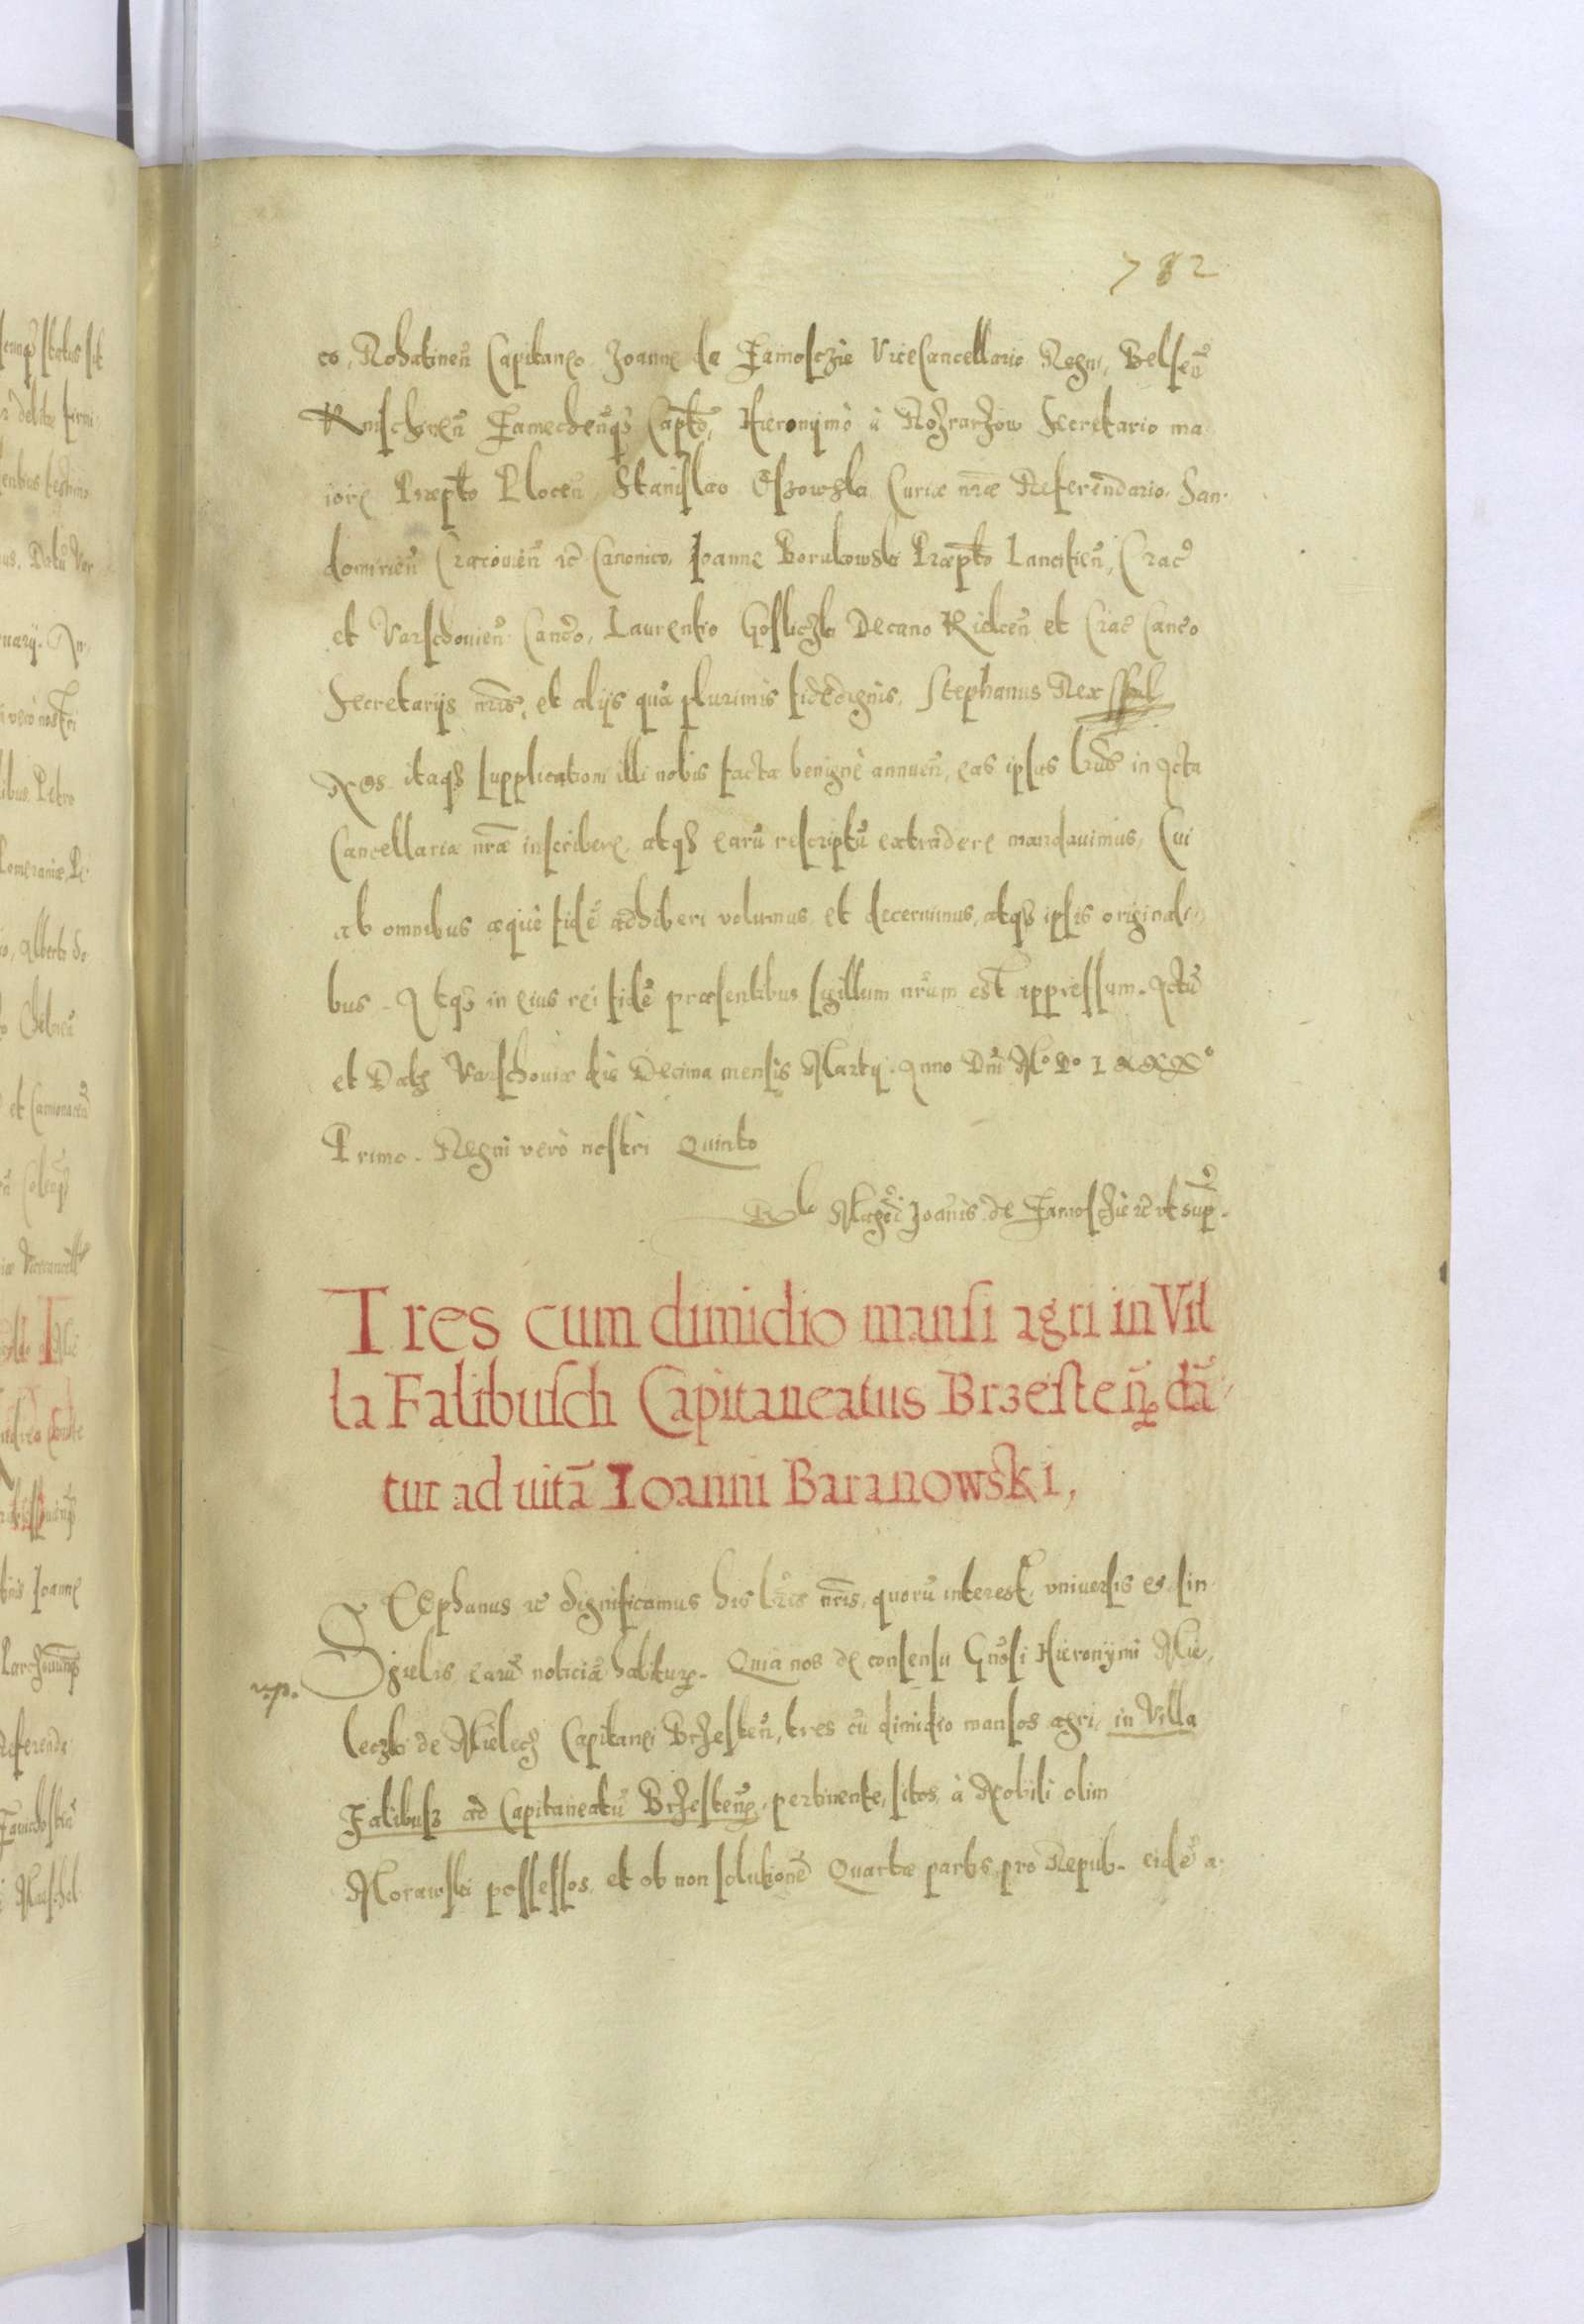 782
co, Rohatinen̄ Capitaneo Joanne de Zamosczie ViceCancellario Regni, Belsen̄
Knischinen̄ Zamechen̄qȝ Capto, Hieronymo à Rozrarzow Secretario ma
iore Præpto Plocen̄ Stanislao Oszowski Curiæ nr̄æ Referendario San-
domirien̄ Cracouien̄ etc Canonico, Joanne Borukowski Præpto Lancicien̄, Crac̄
et Varschouien̄ Can̄co, Laurentio Gosliczki Decano Kielcen̄ et Crac̄ Canco
Secretarijs nr̄is, et alijs quā plurimis fidedignis, Stephanus Rex sspt
Nos itaqȝ supplicationi illi nobis factæ benignè annuen̄, eas ipsas lrās in Acta
Cancellariæ nr̄æ inscribere, atqȝ earū rescriptū extradere mandauimus, Cui
ab omnibus æquè fidē adhiberi volumus et decernimus, atqȝ ipsis originali-
bus. Atqȝ in eius rei fidē præsentibus sigillum nr̄um est appressum. Actū
et Datȝ Varschouiæ die Decima mensis Martij. Anno Dn̄i Mº Dº LXXXº
Primo. Regni verò nostri Quinto
Rlo Magci Joannis de Zamosczie etc vt sup.
Tres cum dimidio mansi agri in Vil
la Falibusch Capitaneatus Brzesten̄. dā
tur ad uitā Ioanni Baranowski,
STephanus etc Significamus his lr̄is nr̄is, quorū interest, vniuersis et sin
gulis, earū noticiā habitur. Quia nos de consensu Gn̄osi Hieronymi Mie,
leczki de Mielecz Capitanei Brzesten̄, tres cū dimidio mansos agri, in Villa
Falibusz ad Capitaneatū Brzesten̄, pertinente, sitos, à Nobili olim
Morawski possessos, et ob non solutionē Quartæ partis pro Repub. eidē a-